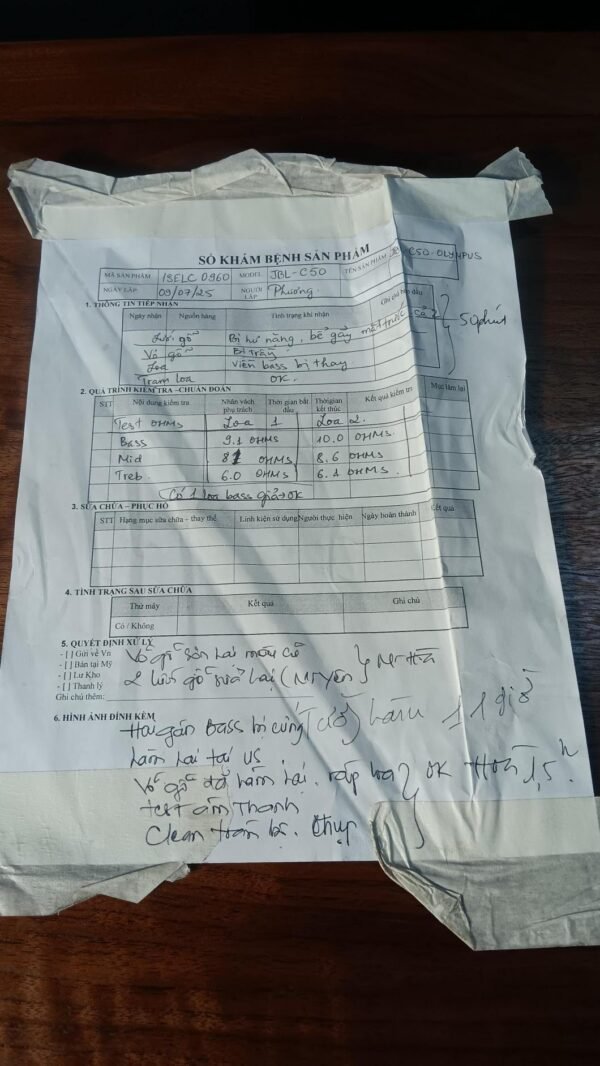 SỔ KHÁM BỆNH SẢN PHẨM
MÃ SẢN PHẨM ISELC 0960 MODEL JBL-C50 TÊN SẢN PHẨM C50-OLYMPUS
NGÀY LẬP 09/07/25 NGƯỜI LẬP Phương
1. THÔNG TIN TIẾP NHẬN
Ngày nhận Nguồn hàng Tình trạng khi nhận Ghi chú ban đầu
Lưới gỗ Bị hư nặng, bể gẫy mặt trước
50 phút
Vỏ gỗ Bị trầy
Loa Viền bass bị thay
Tram loa OK.
2. QUÁ TRÌNH KIỂM TRA – CHUẨN ĐOÁN
STT Nội dung kiểm tra Nhân vách phụ trách Thời gian bắt đầu Thời gian kết thúc Kết quả kiểm tra Mục làm lại
Test OHMS Loa 1 Loa 2.
Bass 9.1 OHMS 10.0 OHMS.
Mid OHMS 8.6 OHMS
Treb. 6.0 OHMS 6.1 OHMS.
Có 1 loa bass OK
3. SỬA CHỮA – PHỤC HỒ
STT Hạng mục sửa chữa – thay thế Linh kiện sử dụng Người thực hiện Ngày hoàn thành Kết quả
4. TÌNH TRẠNG SAU SỬA CHỮA
Thử máy Kết quả Ghi chú
Có / Không
5. QUYẾT ĐỊNH XỬ LÝ
- [ ] Gửi về Vn Vỏ gỗ sơn lại màu cũ
- [ ] Bán tại Mỹ
- [ ] Lư Kho 2 lưới gỗ sửa lại (Mr Yên)
- [ ] Thanh lý
Ghi chú thêm:
6. HÌNH ẢNH ĐÍNH KÈM
Hai gân Bass bị cứng làm 11 giờ
làm lại tại US.
Vỏ gỗ đã làm lại. ráp loa OK 1,5 h.
test âm thanh
Clean toàn bộ. Chụp